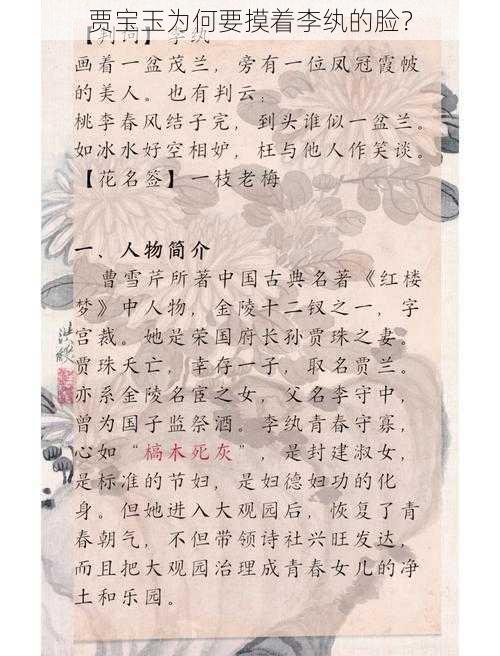 贾宝玉为何要摸着李纨的脸？
【判词】李纨
画着一盆茂兰，旁有一位凤冠霞帔
的美人。也有判云：
桃李春风结子完，到头谁似一盆兰。
如冰水好空相妒，枉与他人作笑谈。
【花名签】一枝老梅
一、人物简介
曹雪芹所著中国古典名著《红楼
梦》中人物，金陵十二钗之一，字
宫裁。她是荣国府长孙贾珠之妻。
贾珠夭亡，幸存一子，取名贾兰。
亦系金陵名宦之女，父名李守中，
曾为国子监祭酒。李纨青春守寡，
心如“槁木死灰”，是封建淑女，
是标准的节妇，是妇德妇功的化
身。但她进入大观园后，恢复了青
春朝气，不但带领诗社兴旺发达，
而且把大观园治理成青春女儿的净
土和乐园。